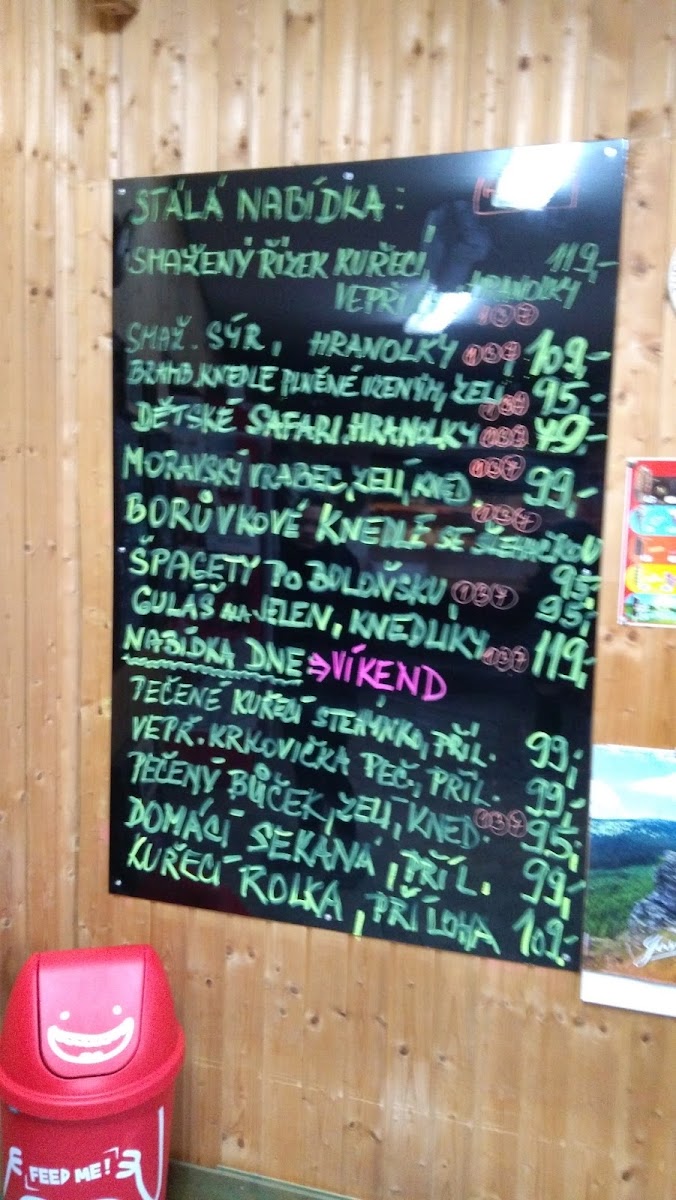 STÁLÁ NABÍDKA:
SMAŽENÝ ŘÍZEK KUŘECÍ, 119,-
HRANOLKY
137
SMAŽ. SÝR, HRANOLKY 137 109,-
BRAMB. KNEDLE PLNĚNÉ UZENÝM, ZELÍ 137 95,-
DĚTSKÉ SAFARI, HRANOLKY 137 79,-
MORAVSKÝ VRABEC, ZELÍ, KNED. 137 99,-
BORŮVKOVÉ KNEDLÉ SE ŠLEHAČKOU 137
95,-
ŠPAGETY PO BOLOŇSKU, 137 95,-
GULÁŠ ALA JELEN, KNEDLÍKY 137 119,-
NABÍDKA DNE ⇒ VÍKEND
PEČENÉ KUŘECÍ STEHÝNKO, PŘÍL. 99,-
VEPŘ. KRKOVIČKA PEČ., PŘÍL. 99,-
PEČENÝ BŮČEK, ZELÍ, KNED. 137 95,-
DOMÁCÍ SEKANÁ, PŘÍL. 99,-
KUŘECÍ ROLKA, PŘÍLOHA 109,-
FEED ME!